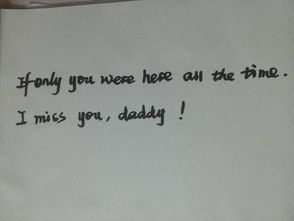 If only you were here all the time.
I miss you, daddy !